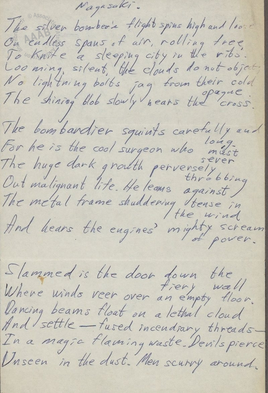 Nagasaki.
The silver bomber's flight spins high and long
On endless spans of air, rolling free
To knife a sleeping city in the ribs.
Looming, silent, the clouds do not object
No lightning bolts jag from their cold
opaque
The shining bob slowly nears the cross.
The bombardier squints carefully and
long
For he is the cool surgeon who must
sever
The huge dark growth perversely
throbbing
Out malignant life. He leans against
The metal frame shuddering tense in
the wind
And hears the engines' mighty scream
of power.
Slammed is the door down the
fiery wall
Where winds veer over an empty floor.
Dancing beams float on a lethal cloud
And settle — fused incendiary threads —
In a magic flaming waste. Devils pierce
Unseen in the dust. Men scurry around.